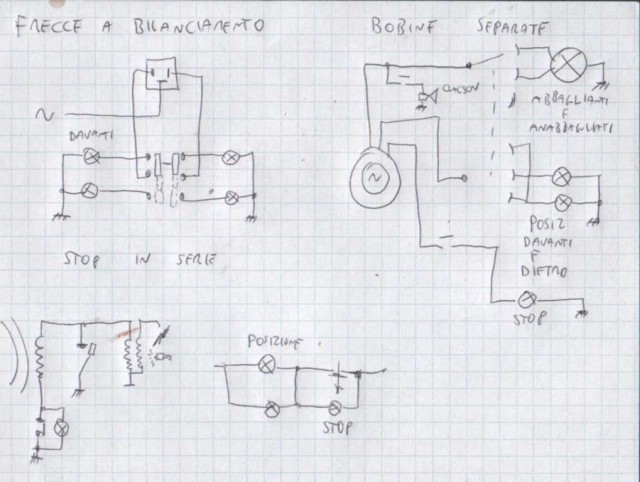 FRECCE A BILANCIAMENTO
BOBINE SEPARATE
CLACSON
DAVANTI
ABBAGLIANTI
E
ANABBAGLIATI
POSIZ
DAVANTI
E
DIETRO
STOP
STOP IN SERIE
POSIZIONE
STOP